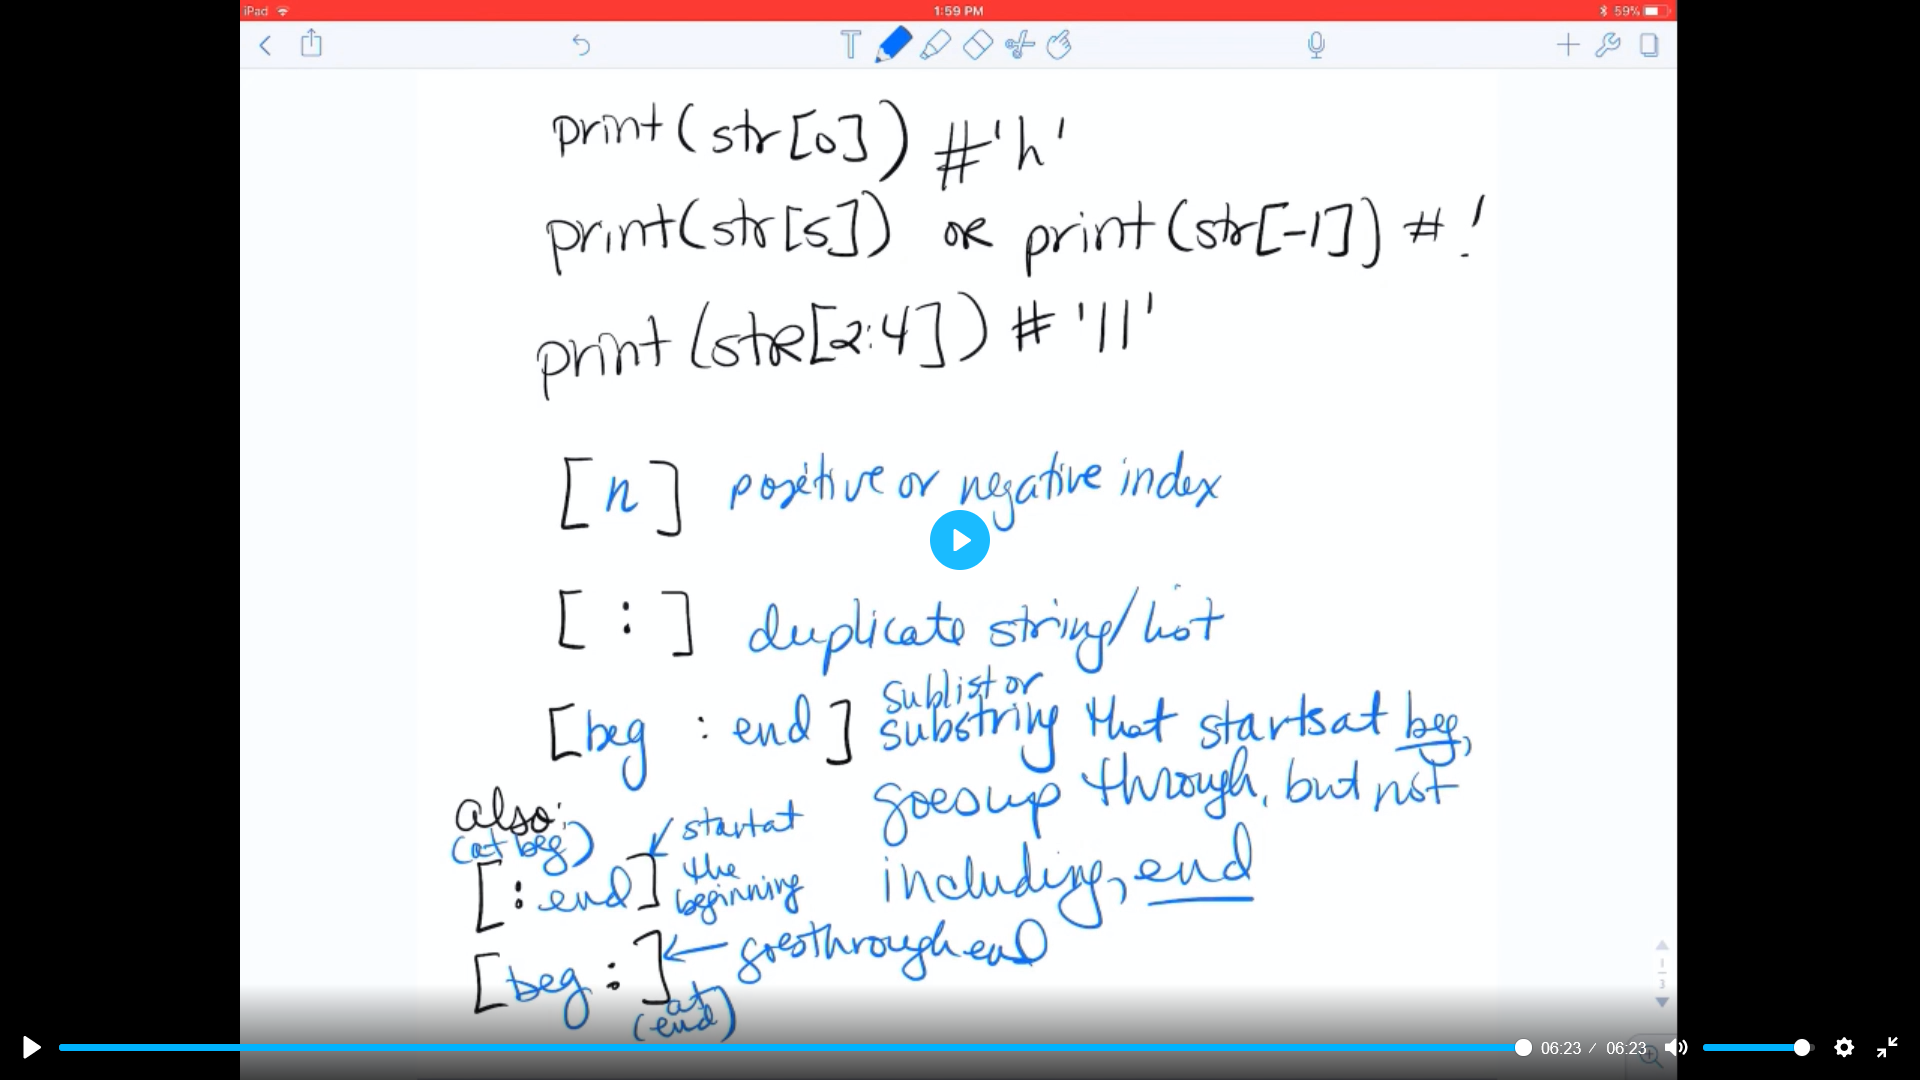 iPad 1:59 PM 59%
print(str[0]) #'h'
print(str[5]) OR print(str[-1]) #!
print(stR[2:4]) # 'll'
[n] positive or negative index
[ : ] duplicate string/list
[beg : end] sublist or
substring that starts at beg,
goes up through, but not
including, end
also:
(at beg)
[:end] start at
the
beginning
[beg:] goes through end
(at
end)
1
3
06:23 / 06:23